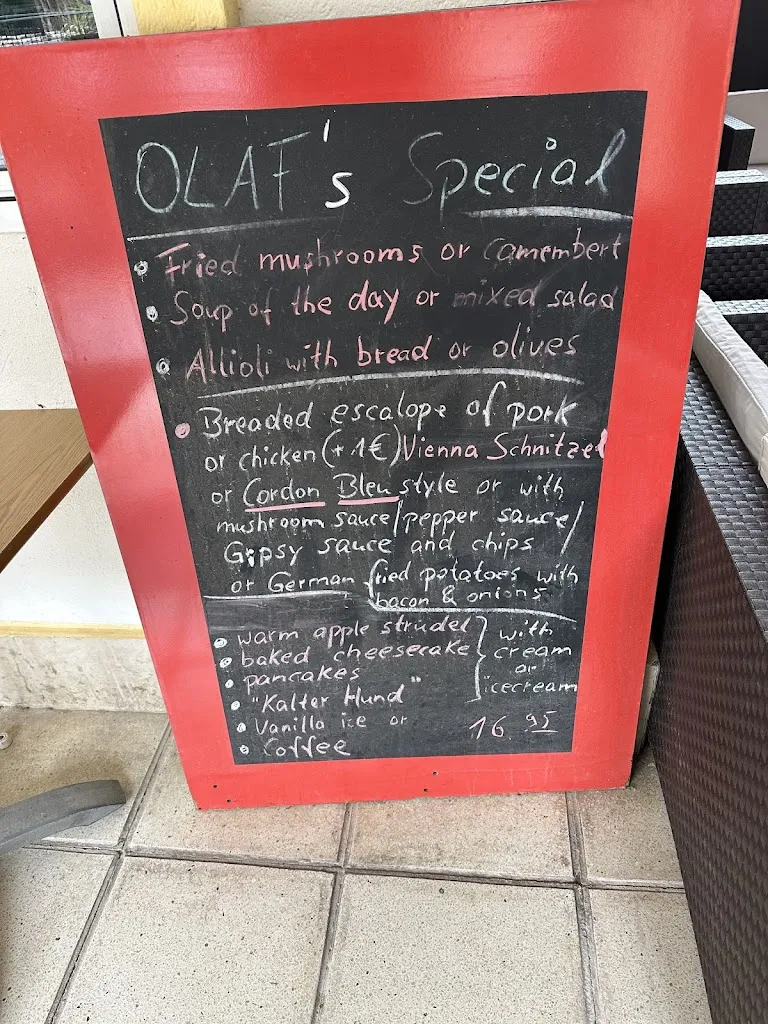 OLAF's Special
Fried mushrooms or camembert
Soup of the day or mixed salad
Allioli with bread or olives
Breaded escalope of pork
or chicken (+1€) Vienna Schnitzel
or Cordon Bleu style or with
mushroom sauce/pepper sauce/
Gipsy sauce and chips
or German fried potatoes with
bacon & onions
warm apple strudel
baked cheesecake
pancakes
"Kalter Hund"
Vanilla ice or
Coffee
with
cream
or
icecream
16.95